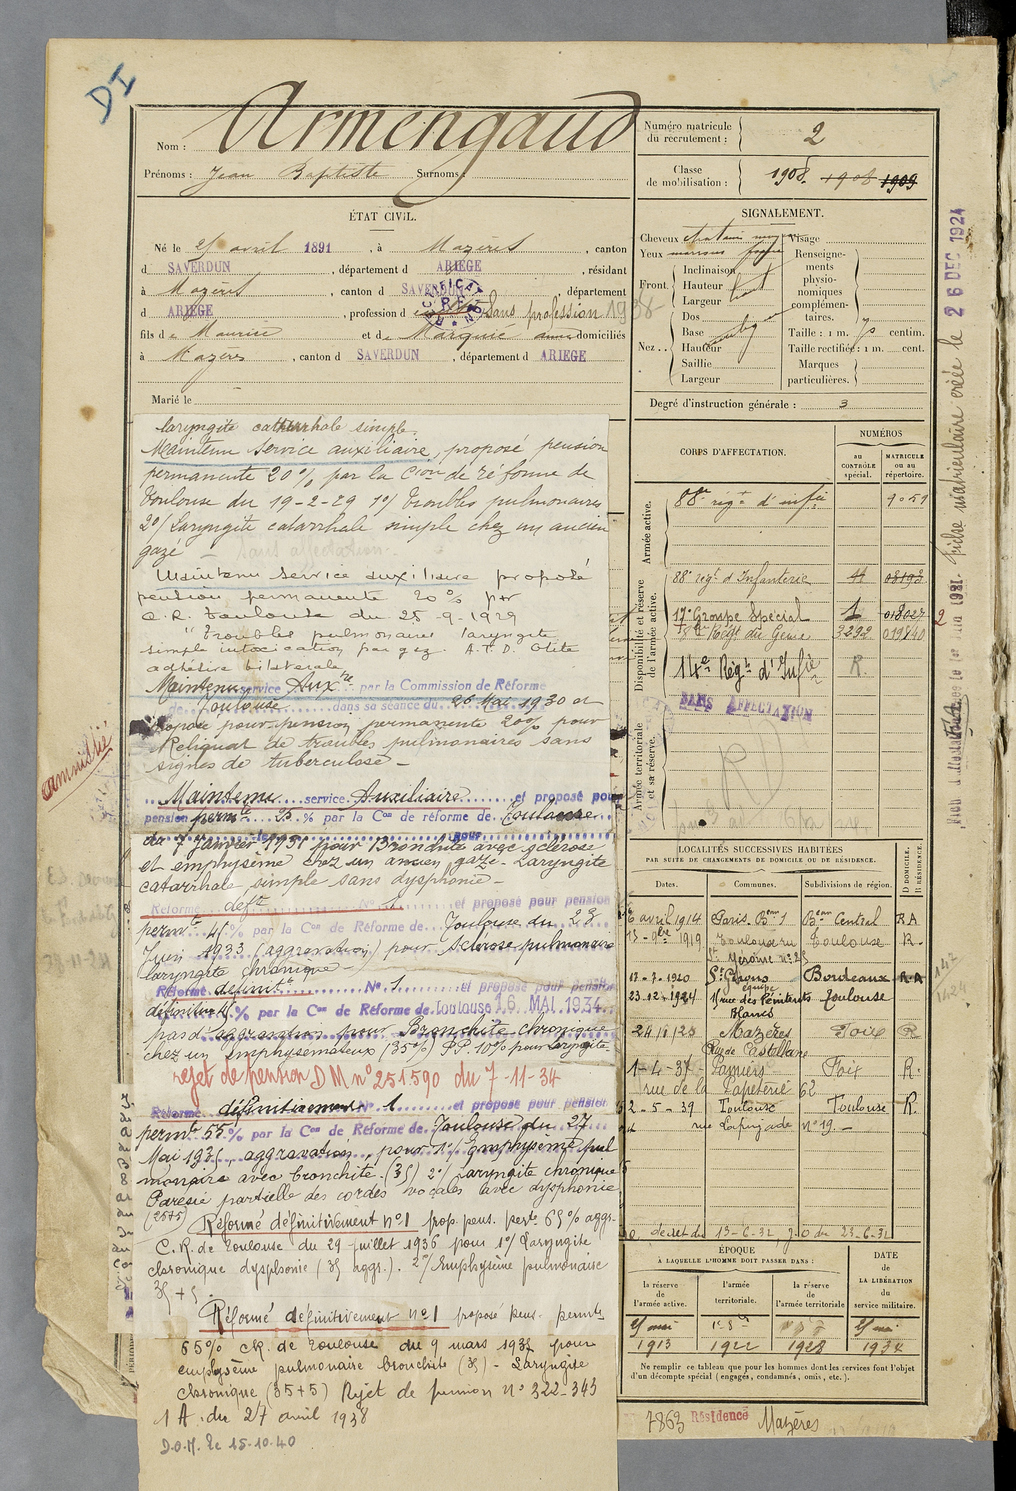 DI
Nom : Armengaud
Prénoms : Jean Baptiste Surnoms :
Numéro matricule du recrutement : 2
Classe de mobilisation : 1908. 1908 1909
ÉTAT CIVIL.
Né le 25 avril 1891, à Mazères, canton
d SAVERDUN, département d ARIEGE, résidant
à Mazères, canton d SAVERDUN, département
d ARIEGE, profession d Sans profession 1938
fils de Maurice et de Marquié domiciliés
à Mazères, canton d SAVERDUN, département d ARIEGE
Marié le
SIGNALEMENT.
Cheveux châtain moyen Visage
Yeux marrons
Front.
Inclinaison
Hauteur haut
Largeur
Nez..
Dos
Base
Hauteur
Saillie
Largeur
Renseignements physionomiques complémentaires.
Taille : 1 m. 70 centim.
Taille rectifiée : 1 m. cent.
Marques particulières.
Degré d'instruction générale : 3
laryngite catarrhale simple.
Maintenu Service auxiliaire, proposé pension
permanente 20% par la Cion de réforme de
Toulouse du 19-2-29 1°/ troubles pulmonaires
2°/ Laryngite catarrhale simple chez un ancien
gazé - Sans affectation.
Maintenu service auxiliaire proposé
pension permanente 20% par
C.R. Toulouse du 25-9-1929
"Troubles pulmonaires laryngite
simple intoxication par gaz. A.T.D. Otite
adhésive bilatérale
Maintenu service Auxre par la Commission de Réforme
de Toulouse dans sa séance du 26 Mai 1930 et
proposé pour pension permanente 20% pour
Reliquat de troubles pulmonaires sans
signes de tuberculose -
Maintenu service Auxiliaire et proposé pour
pension permte 25 % par la Con de réforme de Toulouse
du 7 Janvier 1931 pour Bronchite avec sclérose
et emphysème chez un ancien gazé - Laryngite
catarrhale simple sans dysphonie -
Réformé deft N° 1 et proposé pour pension
permte 45% par la Con de Réforme de Toulouse du 23
Juin 1933 (aggravation) pour Sclérose pulmonaire
laryngite chronique -
Réformé définitt N° 1 et proposé pour pension
définitive % par la Con de Réforme de Toulouse 16 MAI 1934
pas d'aggravation pour Bronchite chronique
chez un Emphysémateux (35%) P.P. 10% pour Laryngite-
rejet de pension DM n° 251590 du 7-11-34
Réformé définitivement N° 1 et proposé pour pension
permte 55% par la Con de Réforme de Toulouse du 27
Mai 1935, aggravation, pour 1°/ Emphysème pul
monaire avec bronchite (35) 2°/ Laryngite chronique
Parésie partielle des cordes vocales avec dysphonie
(25+5)
Réformé définitivement n°1 prop. pens. perte 65% aggr.
C.R. de Toulouse du 29 juillet 1936 pour 1°/ Laryngite
chronique dysphonie (35 aggr.). 2°/ Emphysème pulmonaire
35 + 5
Réformé définitivement n°1 proposé pens. permte
65% CR. de Toulouse du 9 mars 1938 pour
emphysème pulmonaire bronchite (35) - Laryngite
chronique (35+5) Rejet de pension n° 322-343
1 A. du 27 avril 1938
D.O.M. le 15-10-40
amnistié
CORPS D'AFFECTATION.
NUMÉROS
au CONTRÔLE spécial.
MATRICULE ou au répertoire.
Armée active.
88e régt d'infie 7051
Disponibilité et réserve de l'armée active.
88e régt d'Infanterie 08193
17e Groupe Spécial 1 018027
Régt du Génie 3292 019840
14e Régt d'Infie R.
Armée territoriale et sa réserve.
SANS AFFECTATION
LOCALITÉS SUCCESSIVES HABITÉES
PAR SUITE DE CHANGEMENTS DE DOMICILE OU DE RÉSIDENCE.
Dates. Communes. Subdivisions de région. D DOMICILE. R RÉSIDENCE.
6 avril 1914 Paris Beau 1 Beau Central RA
1919 Toulouse ru Toulouse R.
St Jérôme n° 25
12-7-1920 St Girons Bordeaux R.A
23.12.1924 11 rue des Pénitents Toulouse
Blancs
24/11/25 Mazères Foix R
Rue de Castellane
1-4-37 Pamiers Foix R.
rue de la Papeterie 62
2-5-39 Toulouse Toulouse R.
rue Lapujade n° 19. -
décret du 13-6-32 J.O du 23-6-32
ÉPOQUE
À LAQUELLE L'HOMME DOIT PASSER DANS :
la réserve de l'armée active.
l'armée territoriale.
la réserve de l'armée territoriale
DATE DE LA LIBÉRATION du service militaire.
1913 1922 1928 1934
Ne remplir ce tableau que pour les hommes dont les services font l'objet
d'un décompte spécial (engagés, condamnés, omis, etc.).
7863 Résidence Mazères
pièce matriculaire créée le 26 DEC 1924